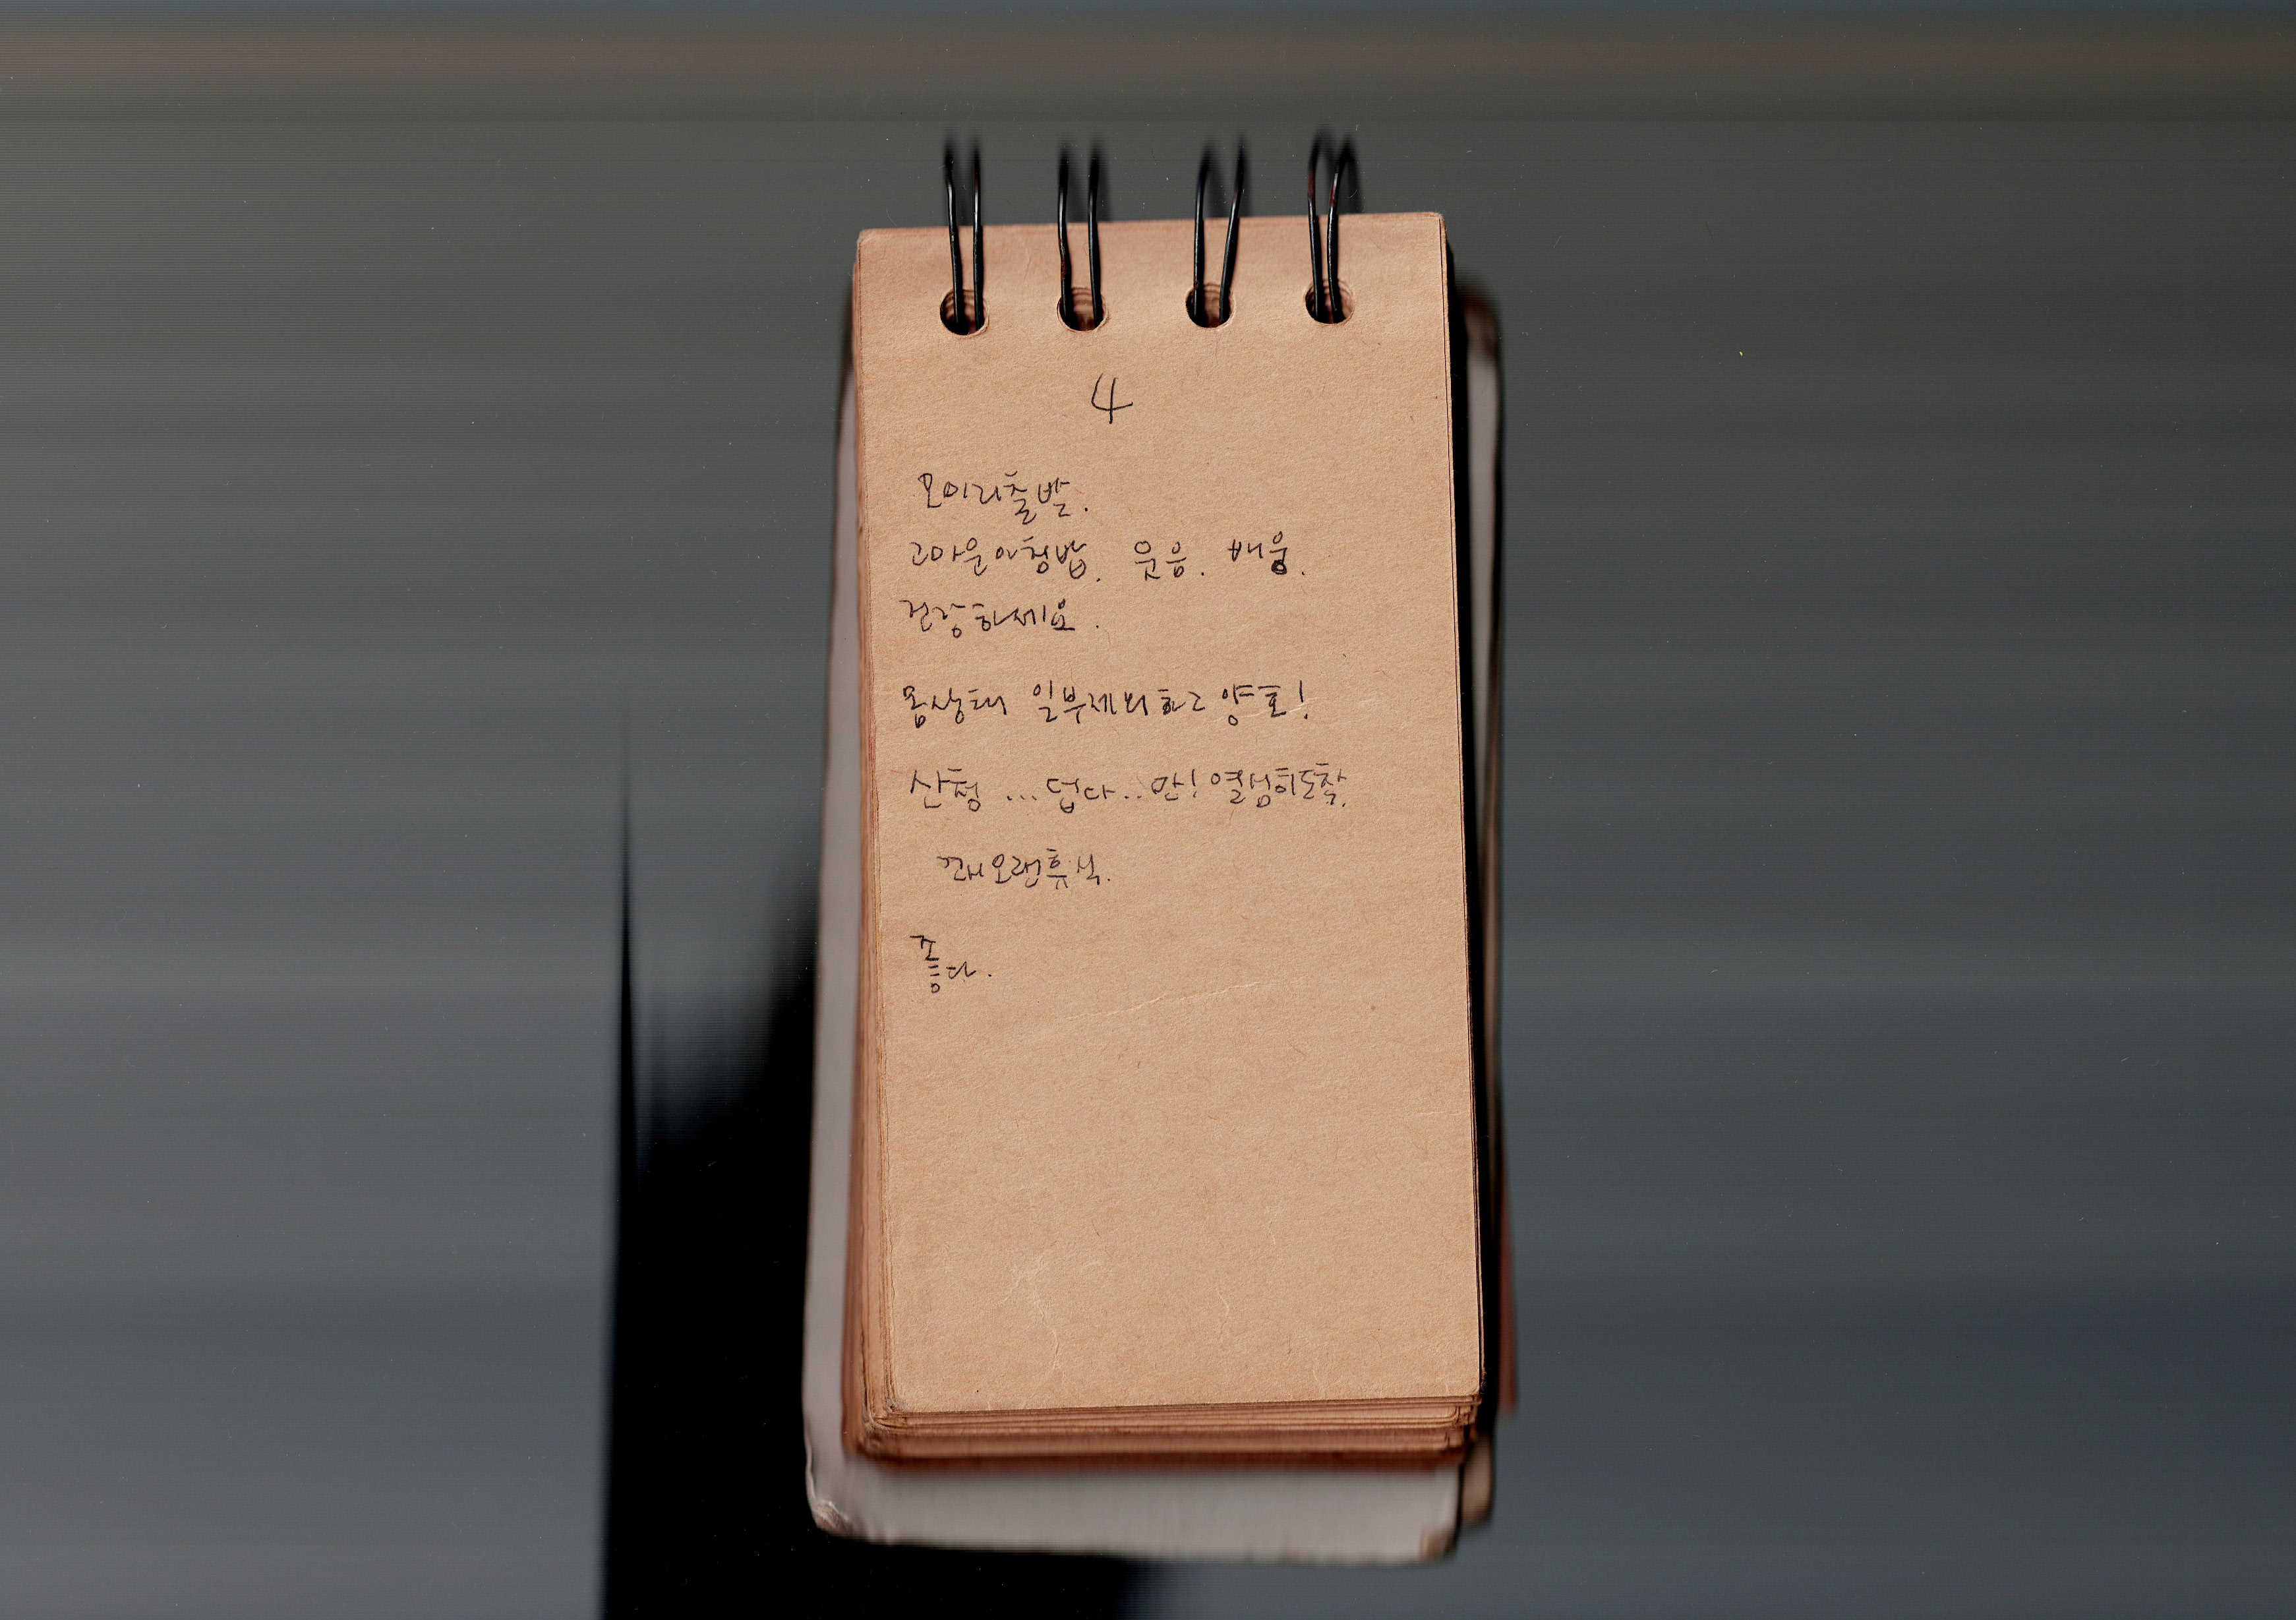 4
모이라출발.
고마운아침밥. 웃음. 배웅.
건강하세요.
몸상태 일부제외하고 양호!
산청 ...덥다..만! 열심히도착.
꽤오랜휴식.
좋다.